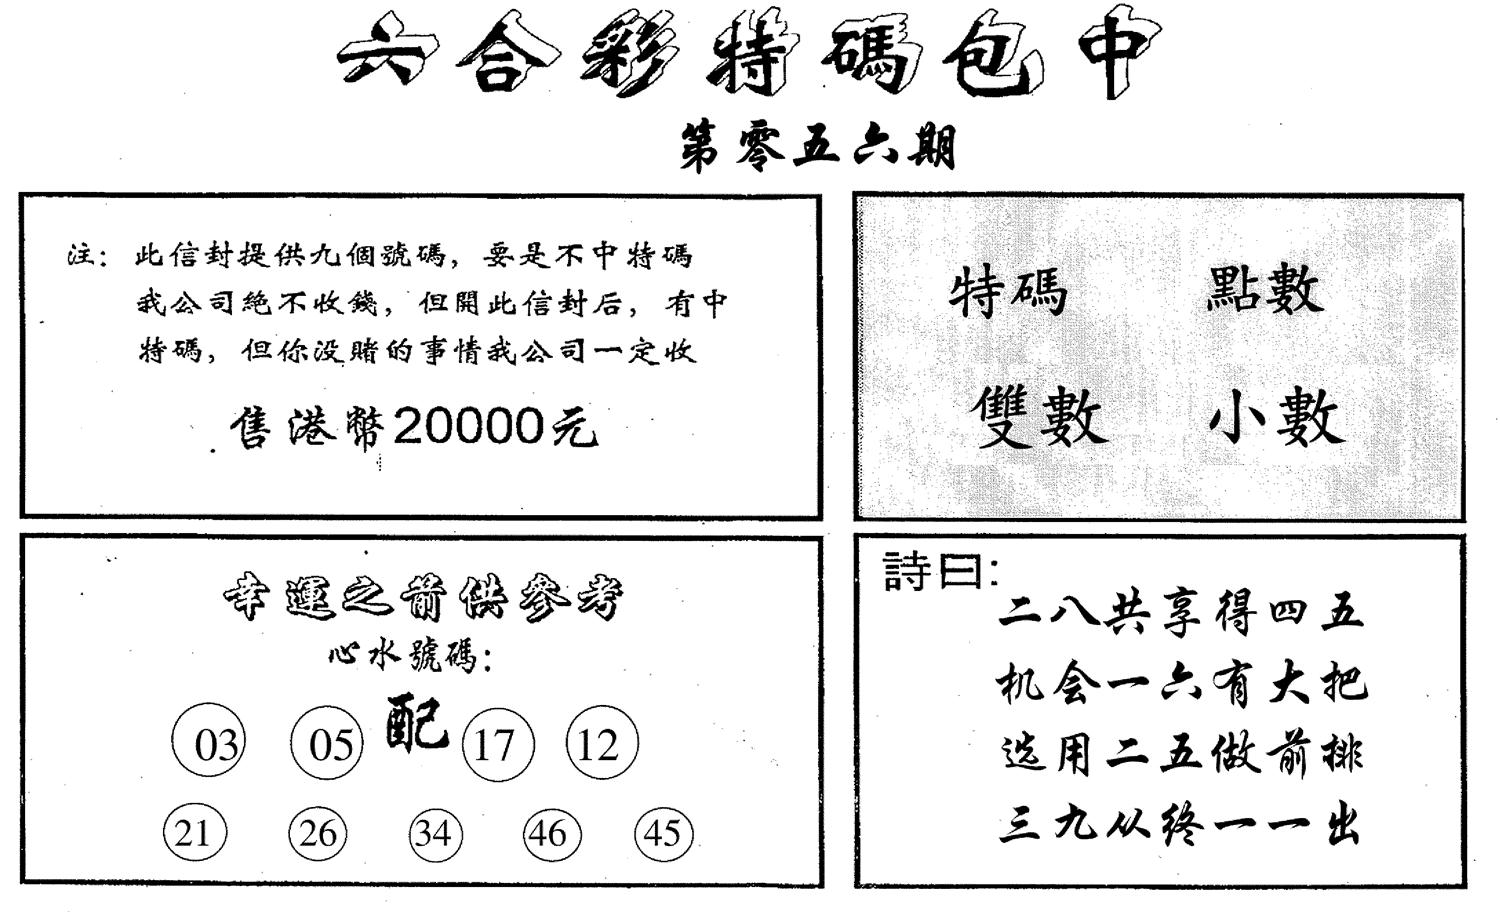 六合彩特碼包中
第零五六期
注：此信封提供九個號碼，要是不中特碼
我公司絕不收錢，但開此信封后，有中
特碼，但你没賭的事情我公司一定收
售港幣20000元
特碼 點數
雙數 小數
幸運之箭供參考
心水號碼：
03 05 配 17 12
21 26 34 46 45
詩曰：
二八共享得四五
机会一六有大把
选用二五做前排
三九从终一一出